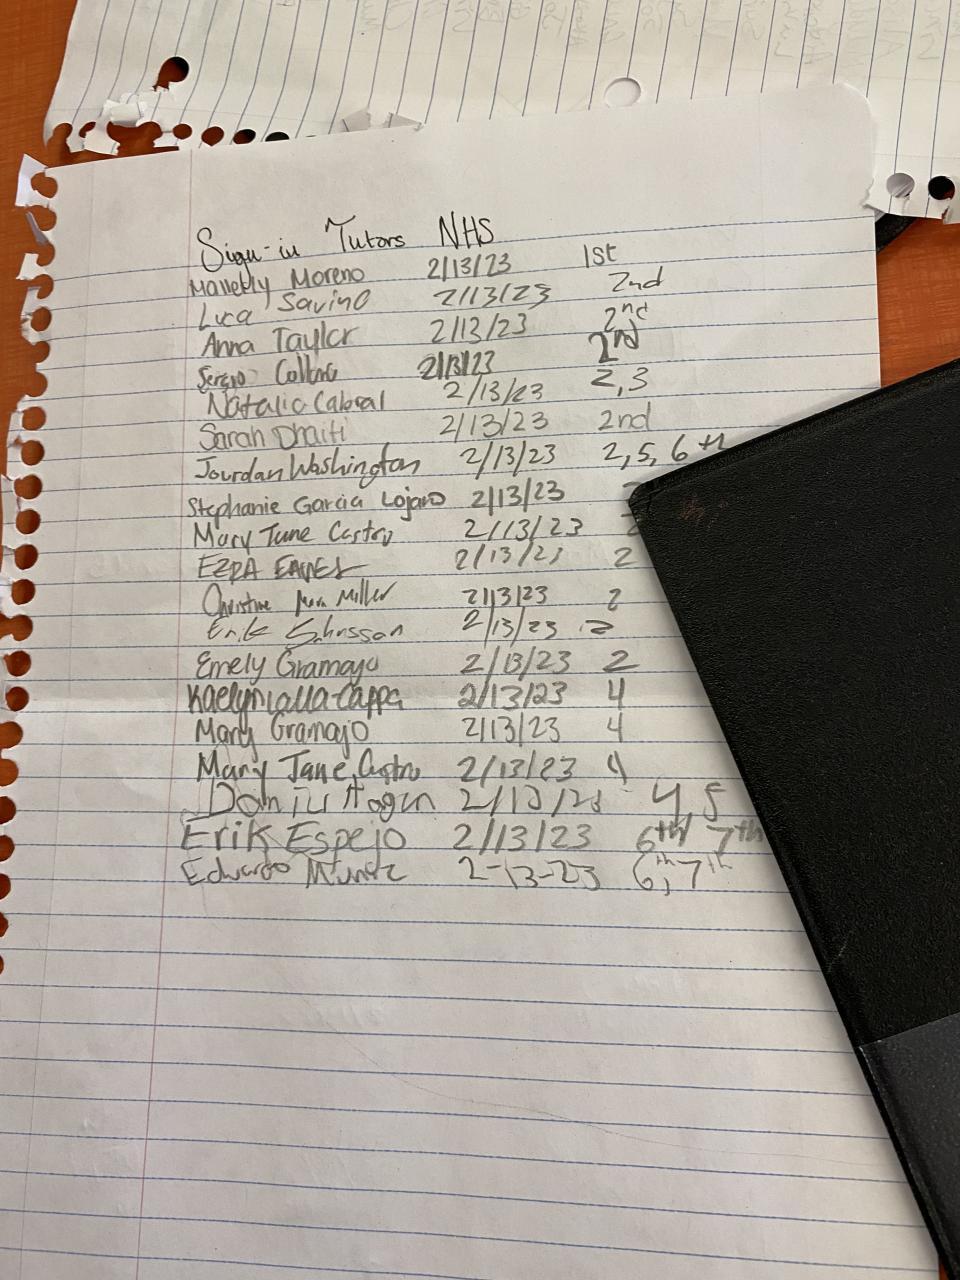 Sign-in Tutors NHS
Mallekly Moreno 2/13/23 1st
Luca Savino 2/13/23 2nd
Anna Taylor 2/13/23 2nd
Sergio 2/13/23 2nd
Natalia Cabral 2/13/23 2,3
Sarah Dhaiti 2/13/23 2nd
Jourdan Washington 2/13/23 2,5,6th
Stephanie Garcia Lojano 2/13/23
Mary Jane Castro 2/13/23
EZRA 2/13/23 2
Christine Miller 2/13/23 2
Erik 2/13/23 2
Emely Gramajo 2/13/23 2
2/13/23 4
Mary Gramajo 2/13/23 4
Mary Jane Castro 2/13/23 4
Hogan 2/13/23 4,5
Erik Espejo 2/13/23 6th/7th
Eduardo 2-13-23 6th,7th